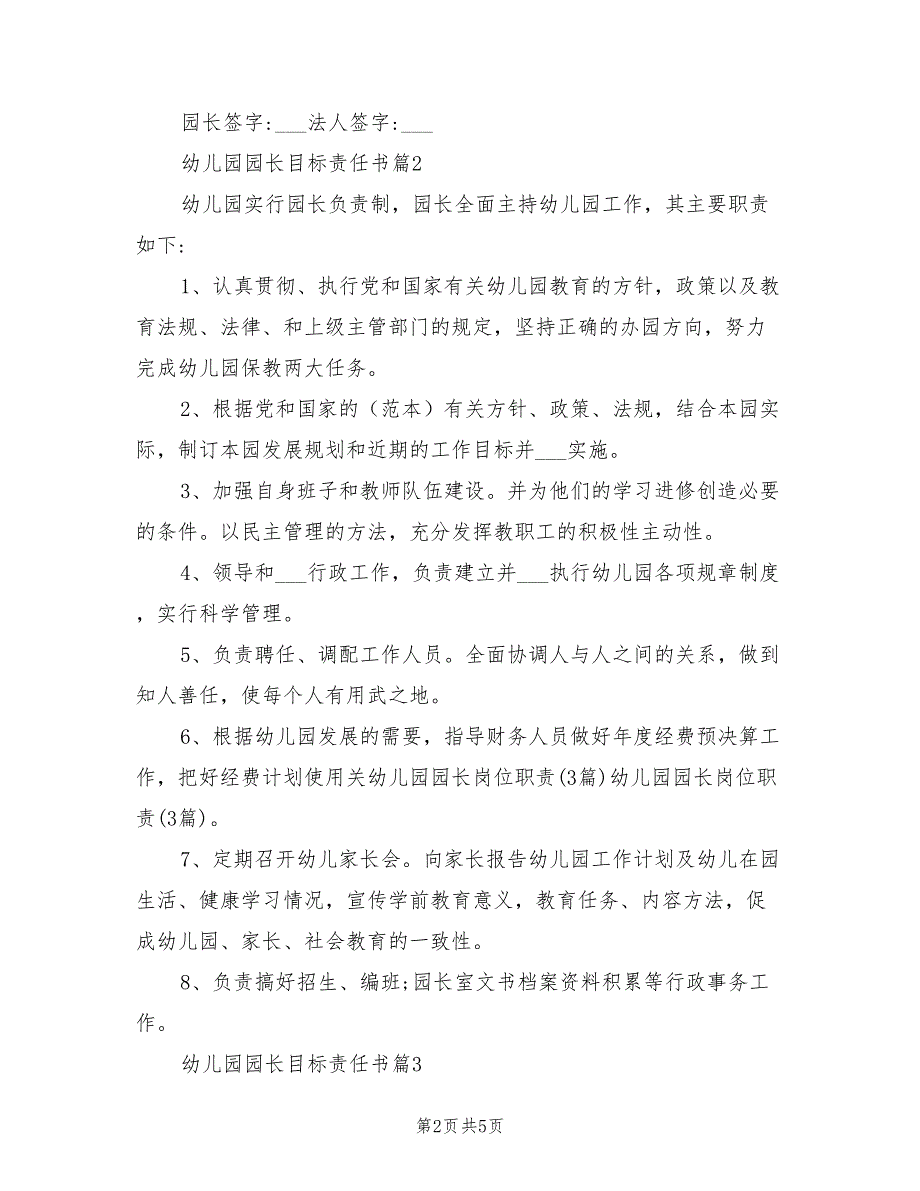 园长签字:___法人签字:___
幼儿园园长目标责任书篇2
幼儿园实行园长负责制，园长全面主持幼儿园工作，其主要职责
如下:
1、认真贯彻、执行党和国家有关幼儿园教育的方针，政策以及教
育法规、法律、和上级主管部门的规定，坚持正确的办园方向，努力
完成幼儿园保教两大任务。
2、根据党和国家的（范本）有关方针、政策、法规，结合本园实
际，制订本园发展规划和近期的工作目标并___实施。
3、加强自身班子和教师队伍建设。并为他们的学习进修创造必要
的条件。以民主管理的方法，充分发挥教职工的积极性主动性。
4、领导和___行政工作，负责建立并___执行幼儿园各项规章制度
，实行科学管理。
5、负责聘任、调配工作人员。全面协调人与人之间的关系，做到
知人善任，使每个人有用武之地。
6、根据幼儿园发展的需要，指导财务人员做好年度经费预决算工
作，把好经费计划使用关幼儿园园长岗位职责(3篇)幼儿园园长岗位职
责(3篇)。
7、定期召开幼儿家长会。向家长报告幼儿园工作计划及幼儿在园
生活、健康学习情况，宣传学前教育意义，教育任务、内容方法，促
成幼儿园、家长、社会教育的一致性。
8、负责搞好招生、编班;园长室文书档案资料积累等行政事务工
作。
幼儿园园长目标责任书篇3
第2页 共5页